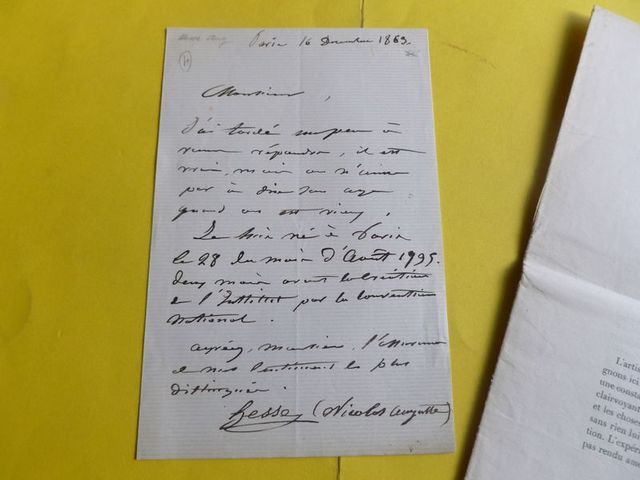 Paris 16 Décembre 1863.
Monsieur,
J'ai tardé un peu à
vous répondre, il est
vrai, mais on n'aime
pas à dire son age
quand on est vieux,
Je suis né à Paris
le 28 du mois d'Août 1795.
deux mois avant la création
de l'Institut par la Convention
national.
agréez, monsieur, l'assurance
de mes sentiment les plus
distingués.
Hesse (Nicolas auguste)
L'artis
gnons ici
une consta
clairvoyan
et les chose
sans rien lui
tion. L'expéri
pas rendu ame